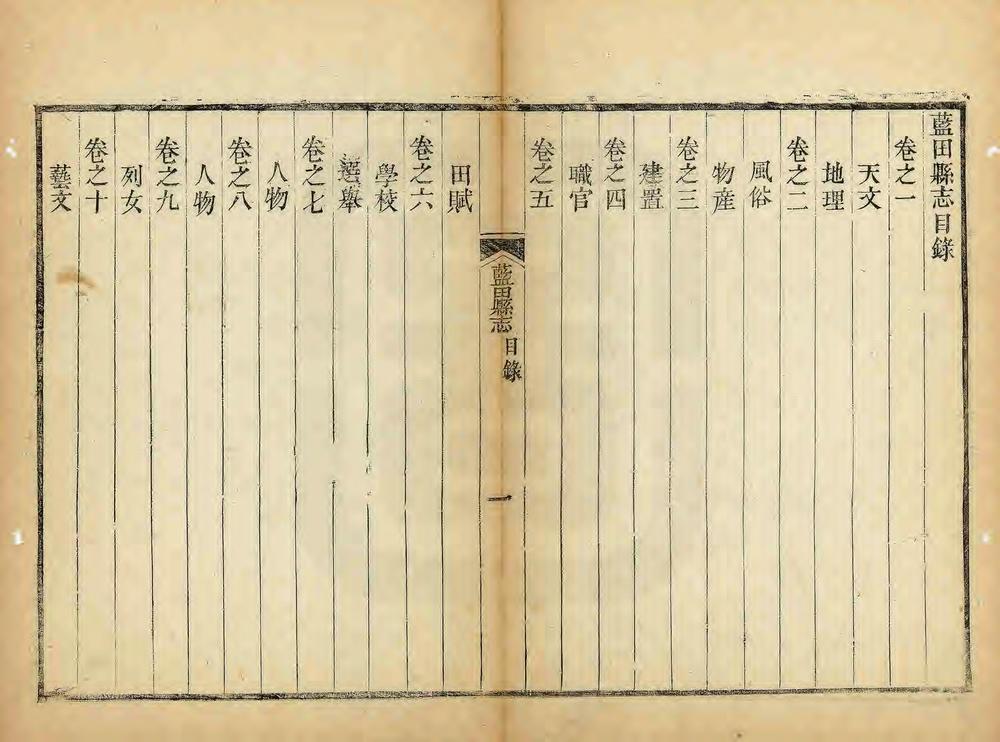 藍田縣志目錄
卷之一
天文
地理
卷之二
風俗
物産
卷之三
建置
卷之四
職官
卷之五
藍田縣志
目錄
一
田賦
卷之六
學校
選舉
卷之七
人物
卷之八
人物
卷之九
列女
卷之十
藝文